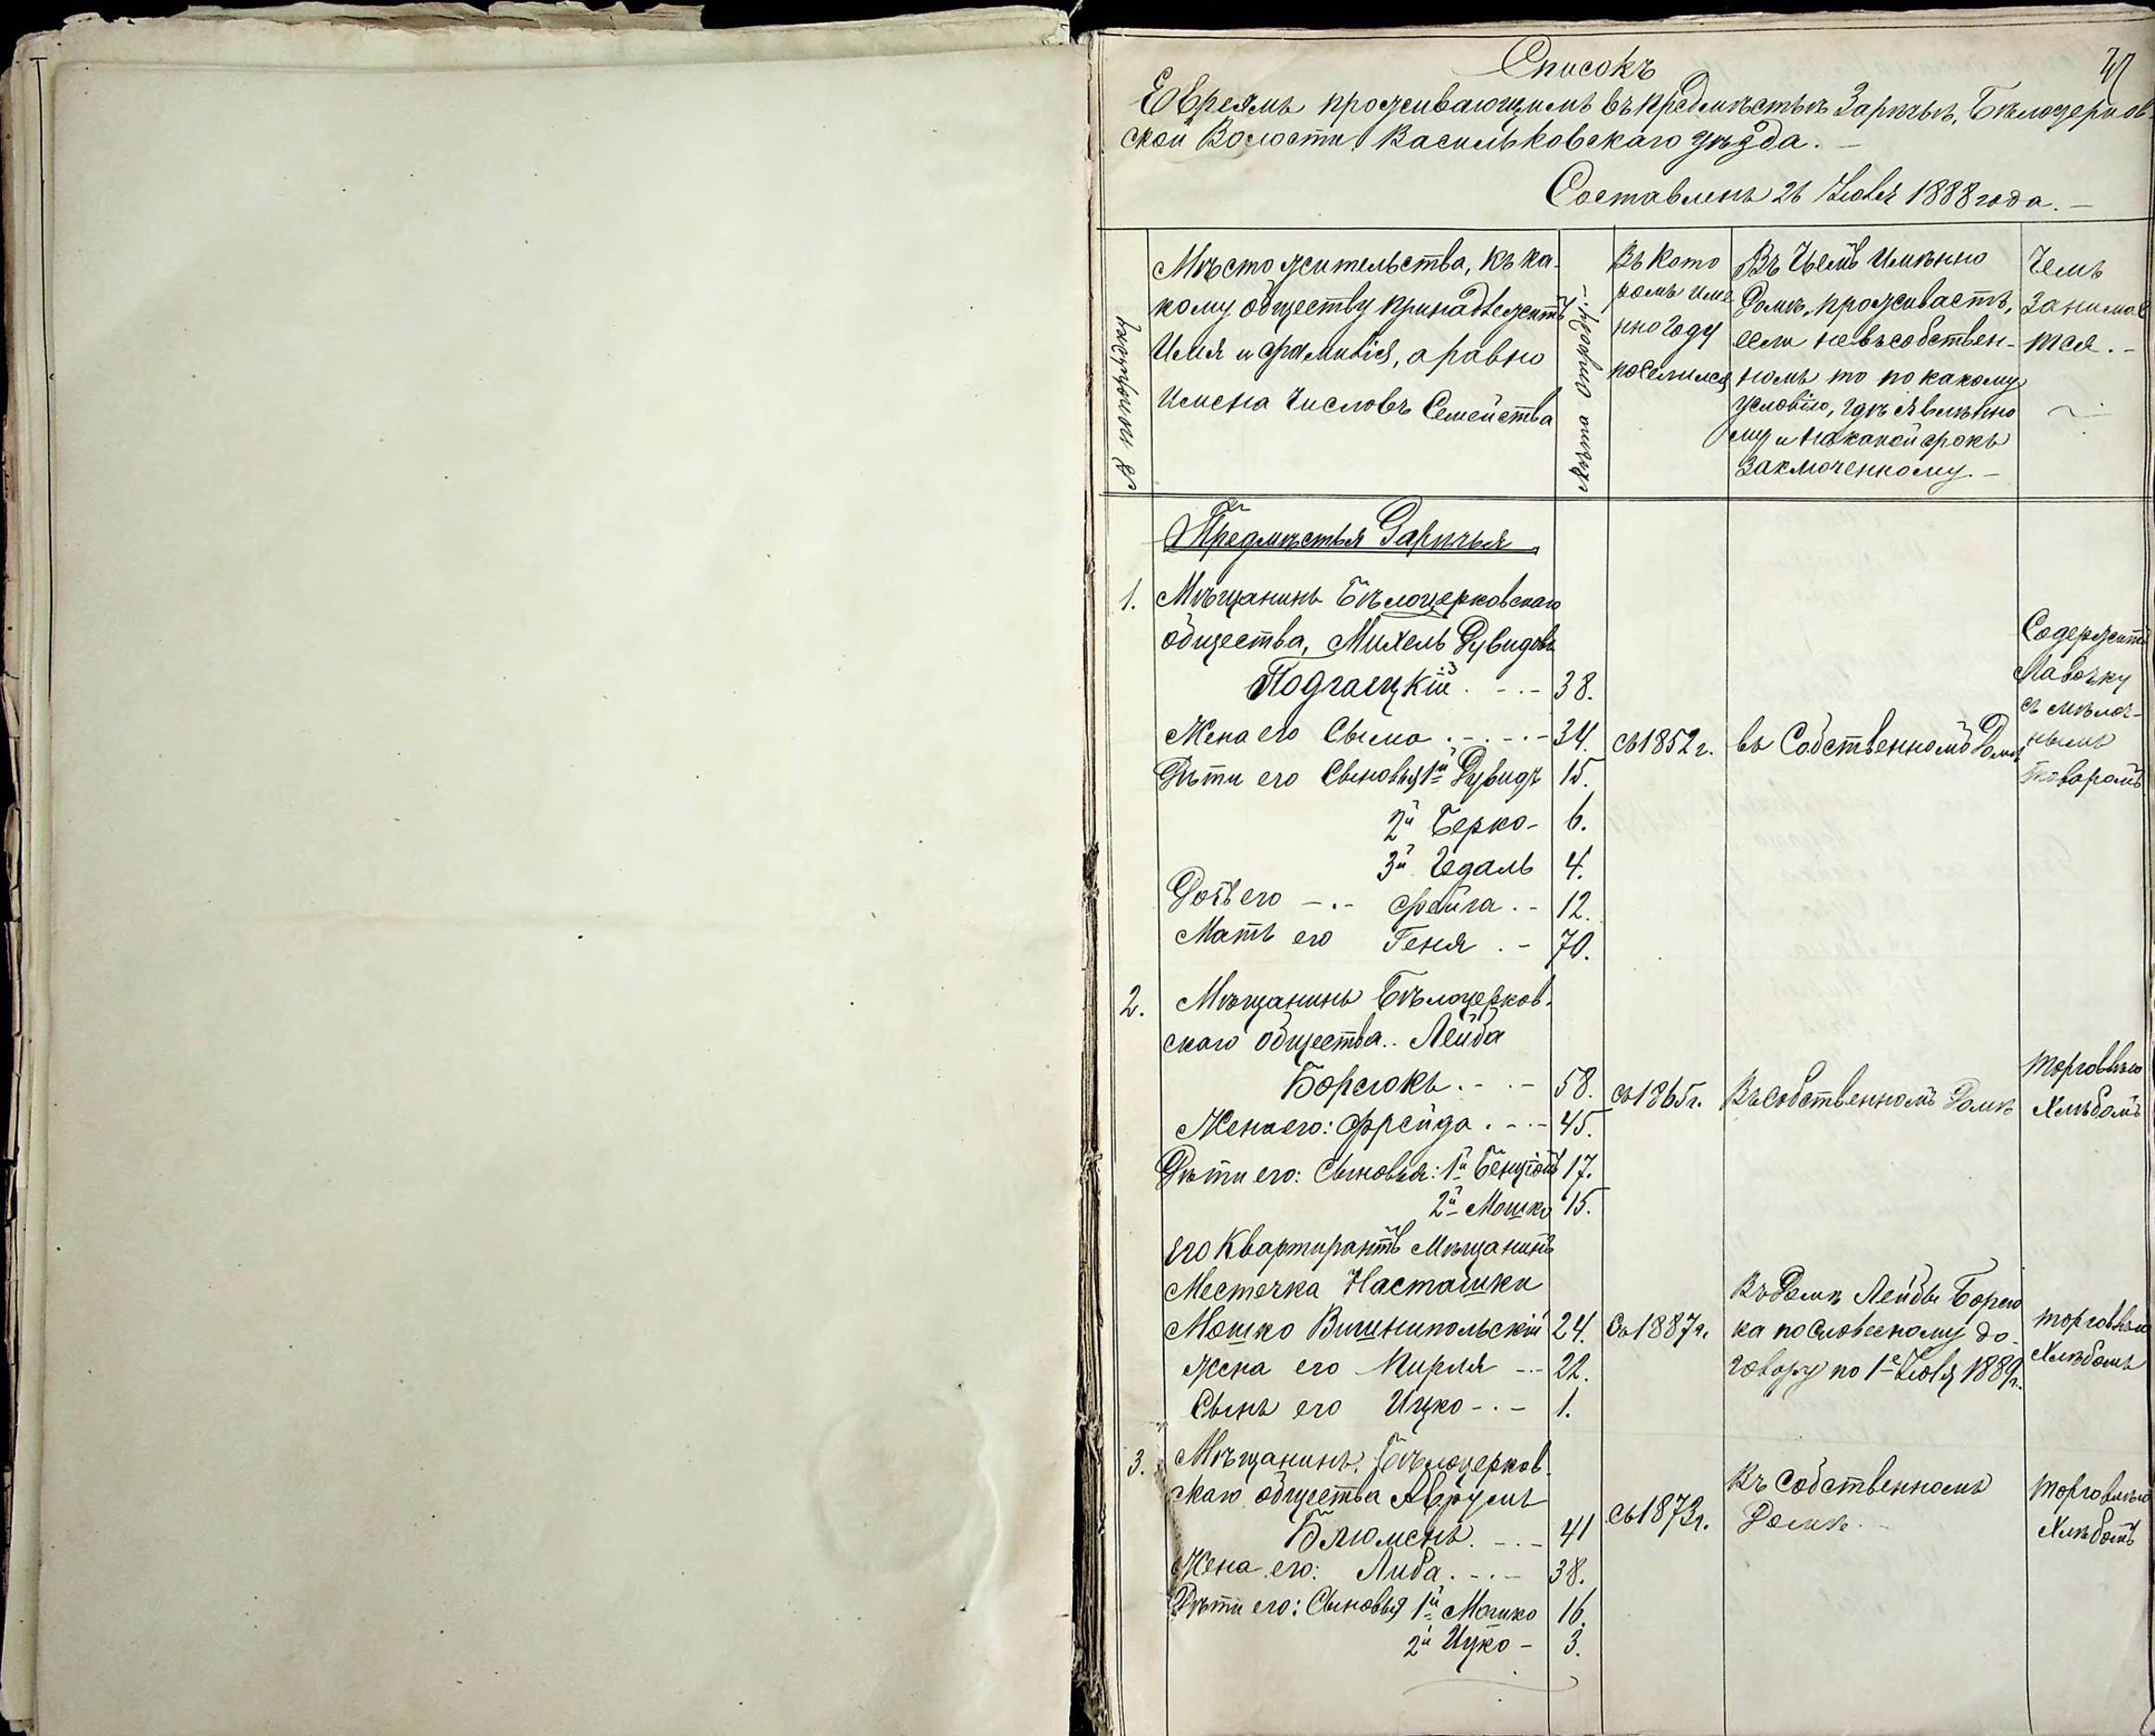 Списокъ
Евреямъ проживающимъ въ предмѣстьѣ Зарѣчьѣ, Бѣлоцерков-
ской Волости Васильковскаго уѣзда. —
Составленъ 26 Іюля 1888 года. —
Мѣсто жительства, къ ка-
кому обществу принадлежитъ
Имя и фамилія, а равно
Имена Числовъ Семейства
Лѣта отъ роду
Въ кото
ромъ име
нно году
поселился
Въ Чьемъ Именно
Домѣ, проживаетъ,
если не въ собствен-
номъ то по какому
условію, гдѣ явленно
му и на какой срокъ
заключенному. —
Чемъ
занимае
тся. —
Предмѣстья Зарѣчья
1. Мѣщанинъ Бѣлоцерковскаго
общества, Михель Дувидовъ
Подгаецкій . - . - 38.
Жена его Сыма . - . - . - 34.
съ 1852 г.
въ Собственномъ Домѣ
Содержитъ
Лавочку
съ мѣлоч-
нымъ
товаромъ
Дѣти его Сыновья 1й Дувидъ 15.
2й Берко - 6.
3й Гедаль 4.
Дочь его - . - Фейга . - 12.
Мать его Геня . - 70.
2. Мѣщанинъ Бѣлоцерков-
скаго общества .. Лейба
Борсюкъ . - . - 58.
съ 1865 г.
Въ собственномъ Домѣ
торговлею
Хлѣбомъ
Жена его: Фрейда . - . - 45.
Дѣти его: Сыновья: 1й Бенціонъ 17.
2й Мошко 15.
его Квартирантъ Мѣщанинъ
Местечка Насташки
Мошко Вишнипольскій 24.
Съ 1887 г.
Въ Домѣ Лейбы Борсю
ка по словесному до-
говору по 1е Іюля 1889 г.
торговлею
Хлѣбомъ
жена его Кирля - . - 22.
Сынъ его Ицко - . - 1.
3. Мѣщанинъ Бѣлоцерков-
скаго общества Аврумъ
Блюменъ . - . - 41
съ 1872 г.
Въ Собственномъ
Домѣ. -
торговлею
Хлѣбомъ
Жена его: Либа . - . - 38.
Дѣти его: Сыновья 1й Мошко 16.
2й Ицко - 3.